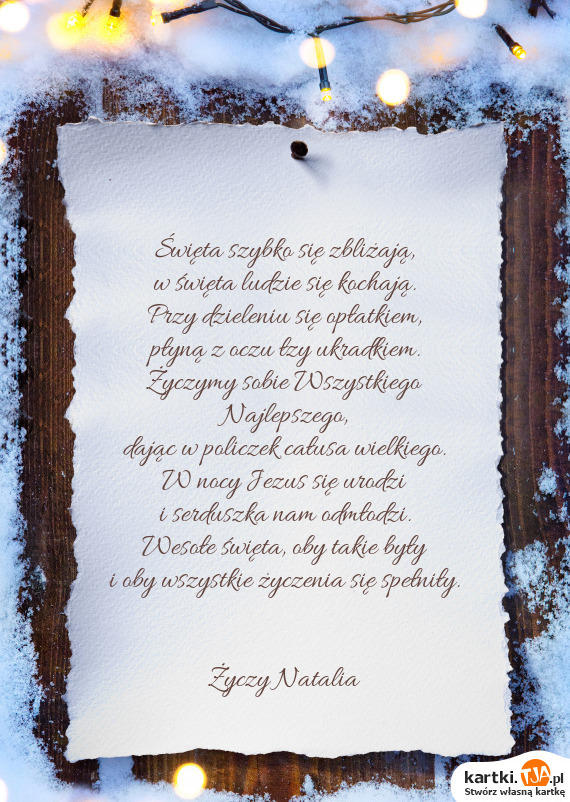 Święta szybko się zbliżają,
w święta ludzie się kochają.
Przy dzieleniu się opłatkiem,
płyną z oczu łzy ukradkiem.
Życzymy sobie Wszystkiego
Najlepszego,
dając w policzek całusa wielkiego.
W nocy Jezus się urodzi
i serduszka nam odmłodzi.
Wesołe święta, oby takie były
i oby wszystkie życzenia się spełniły.
Życzy Natalia
kartki.TJA.pl
Stwórz własną kartkę